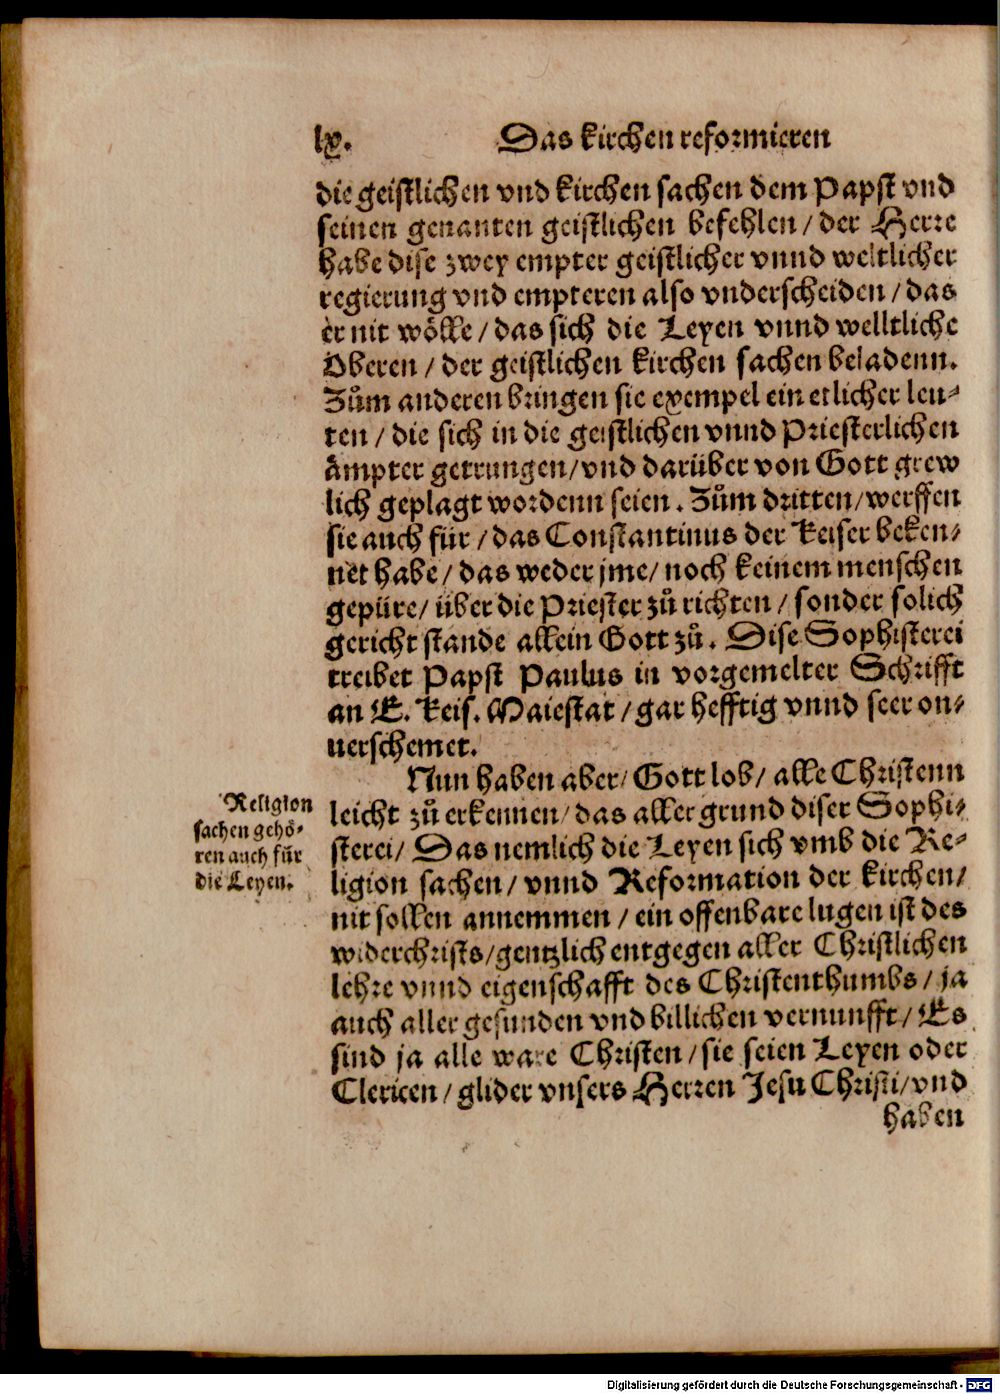 lx. Das kirchen reformieren
die geistlichen vnd kirchen sachen dem Papst vnd
seinen genanten geistlichen befehlen / der Herre
habe dise zwey empter geistlicher vnnd weltlicher
regierung vnd empteren also vnderscheiden / das
er nit wölle / das sich die Leyen vnnd welltliche
Oberen / der geistlichen kirchen sachen beladenn.
Zům anderen bringen sie exempel ein etlicher leu⸗
ten / die sich in die geistlichen vnnd Priesterlichen
ämpter getrungen / vnd darüber von Gott grew
lich geplagt wordenn seien. Zům dritten / werffen
sie auch für / das Constantinus der Keiser beken⸗
net habe / das weder jme / noch keinem menschen
gepüre / über die Priester zů richten / sonder solich
gericht stande allein Gott zů. Dise Sophisterei
treibet Papst Paulus in vorgemelter Schrifft
an E. Keis. Maiestat / gar hefftig vnnd seer on⸗
uerschemet.
Nun haben aber / Gott lob / alle Christenn
leicht zů erkennen / das aller grund diser Sophi⸗
sterei / Das nemlich die Leyen sich vmb die Re⸗
ligion sachen / vnnd Reformation der kirchen /
nit sollen annemmen / ein offenbare lugen ist des
widerchrists / gentzlich entgegen aller Christlichen
lehre vnnd eigenschafft des Christenthumbs / ja
auch aller gesunden vnd billichen vernunfft / Es
sind ja alle ware Christen / sie seien Leyen oder
Clericen / glider vnsers Herren Jesu Christi / vnd
haben
Religion
sachen gehö⸗
ren auch für
die Leyen.
Digitalisierung gefördert durch die Deutsche Forschungsgemeinschaft - DFG